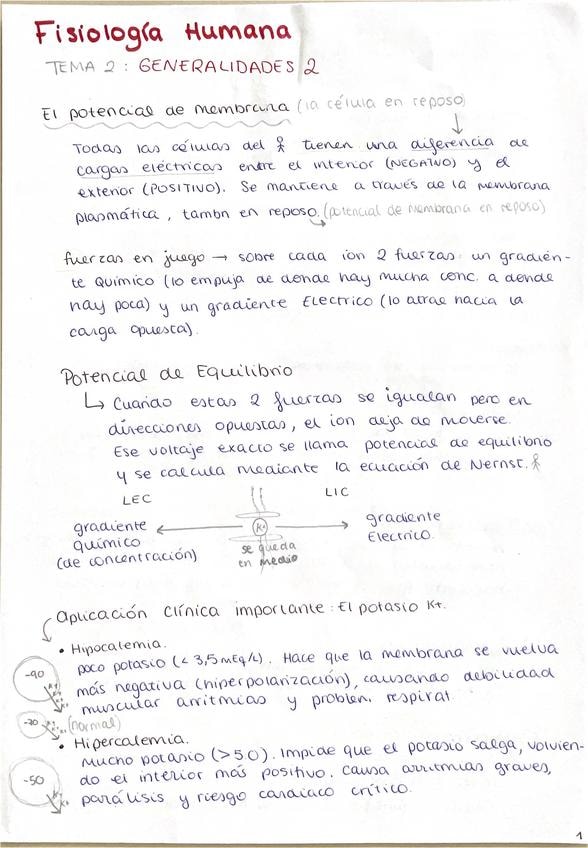 Fisiología Humana
TEMA 2: GENERALIDADES 2
El potencial de membrana (la célula en reposo)
Todas las células del tienen una diferencia de
cargas eléctricas entre el interior (NEGATIVO) y el
exterior (POSITIVO). Se mantiene a través de la membrana
plasmática, tambn en reposo. (potencial de membrana en reposo)
fuerzas en juego → sobre cada ion 2 fuerzas: un gradien-
te Químico (lo empuja de donde hay mucha conc. a donde
hay poca) y un gradiente Electrico (lo atrae hacia la
carga opuesta).
Potencial de Equilibrio
↳ Cuando estas 2 fuerzas se igualan pero en
direcciones opuestas, el ion deja de moverse.
Ese voltaje exacto se llama potencial de equilibrio
y se calcula mediante la ecuación de Nernst.
LEC LIC
gradiente químico (de concentración)
K+
se queda en medio
gradiente Electrico.
Aplicación Clínica importante: El potasio K+.
• Hipocalemia.
poco potasio (< 3,5 mEq/L). Hace que la membrana se vuelva
más negativa (hiperpolarización), causando debilidad
muscular arritmias y problem. respirat.
-90
-70 (normal)
• Hipercalemia.
Mucho potasio (>50). Impide que el potasio salga, volvien-
do el interior más positivo. Causa arritmias graves,
parálisis y riesgo cardiaco crítico.
-50
1